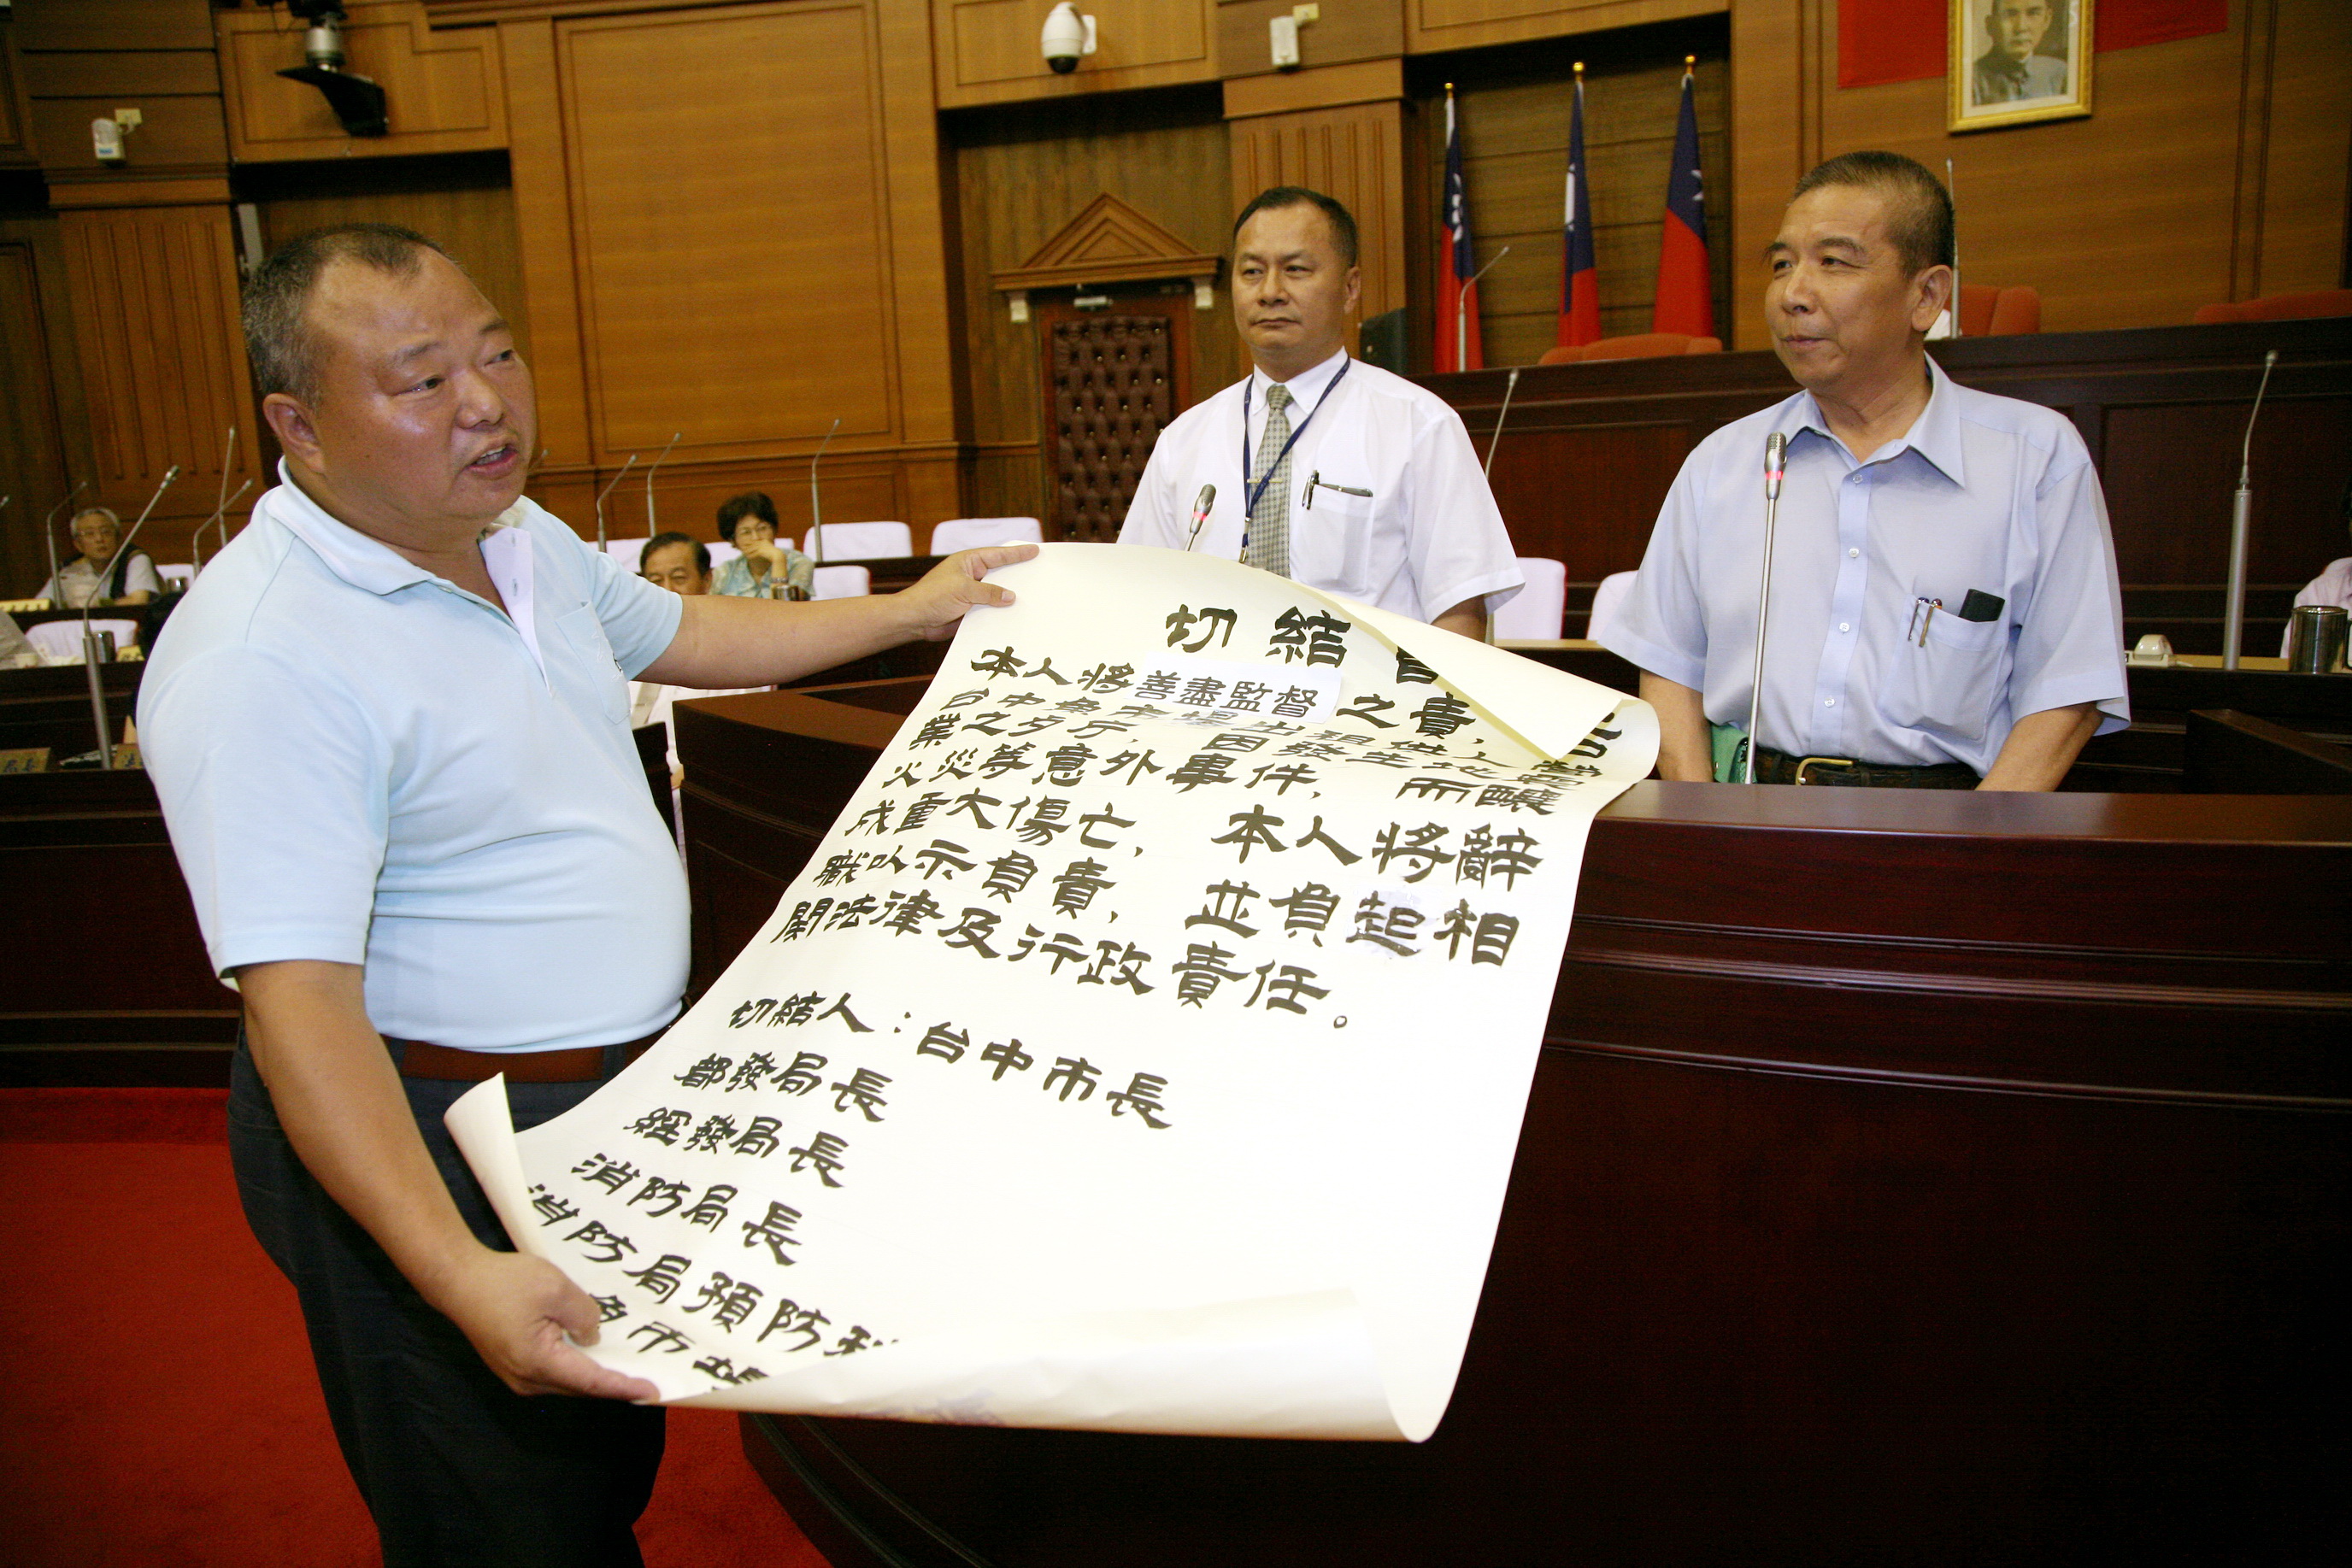 切結書
本人將善盡監督之責,若
台中魚市場出租供人營
業之夕方,因發生地震
火災等意外事件,而釀
成重大傷亡,本人將辭
職以示負責,並負起相
關法律及行政責任。
切結人:台中市長
都發局長
經發局長
消防局長
消防局預防科
魚市場